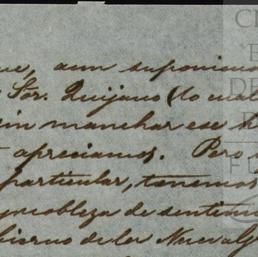 ue, aun suponiend
Sor. Quijano (lo cual
sin manchar ese
apreciamos. Pero
particular, tenemos
y nobleza de sentim
bierno de los Nueva G